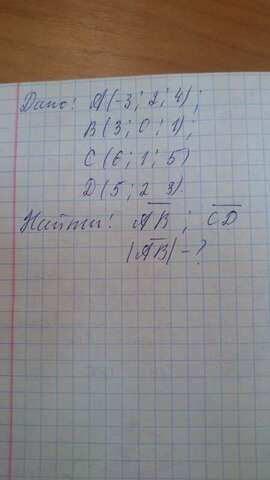 Дано: A(-3; 2; 4);
B(3; 0; 1);
C(6; 1; 5)
D(5; 2 8)
Найти: AB ; CD
|AB| - ?